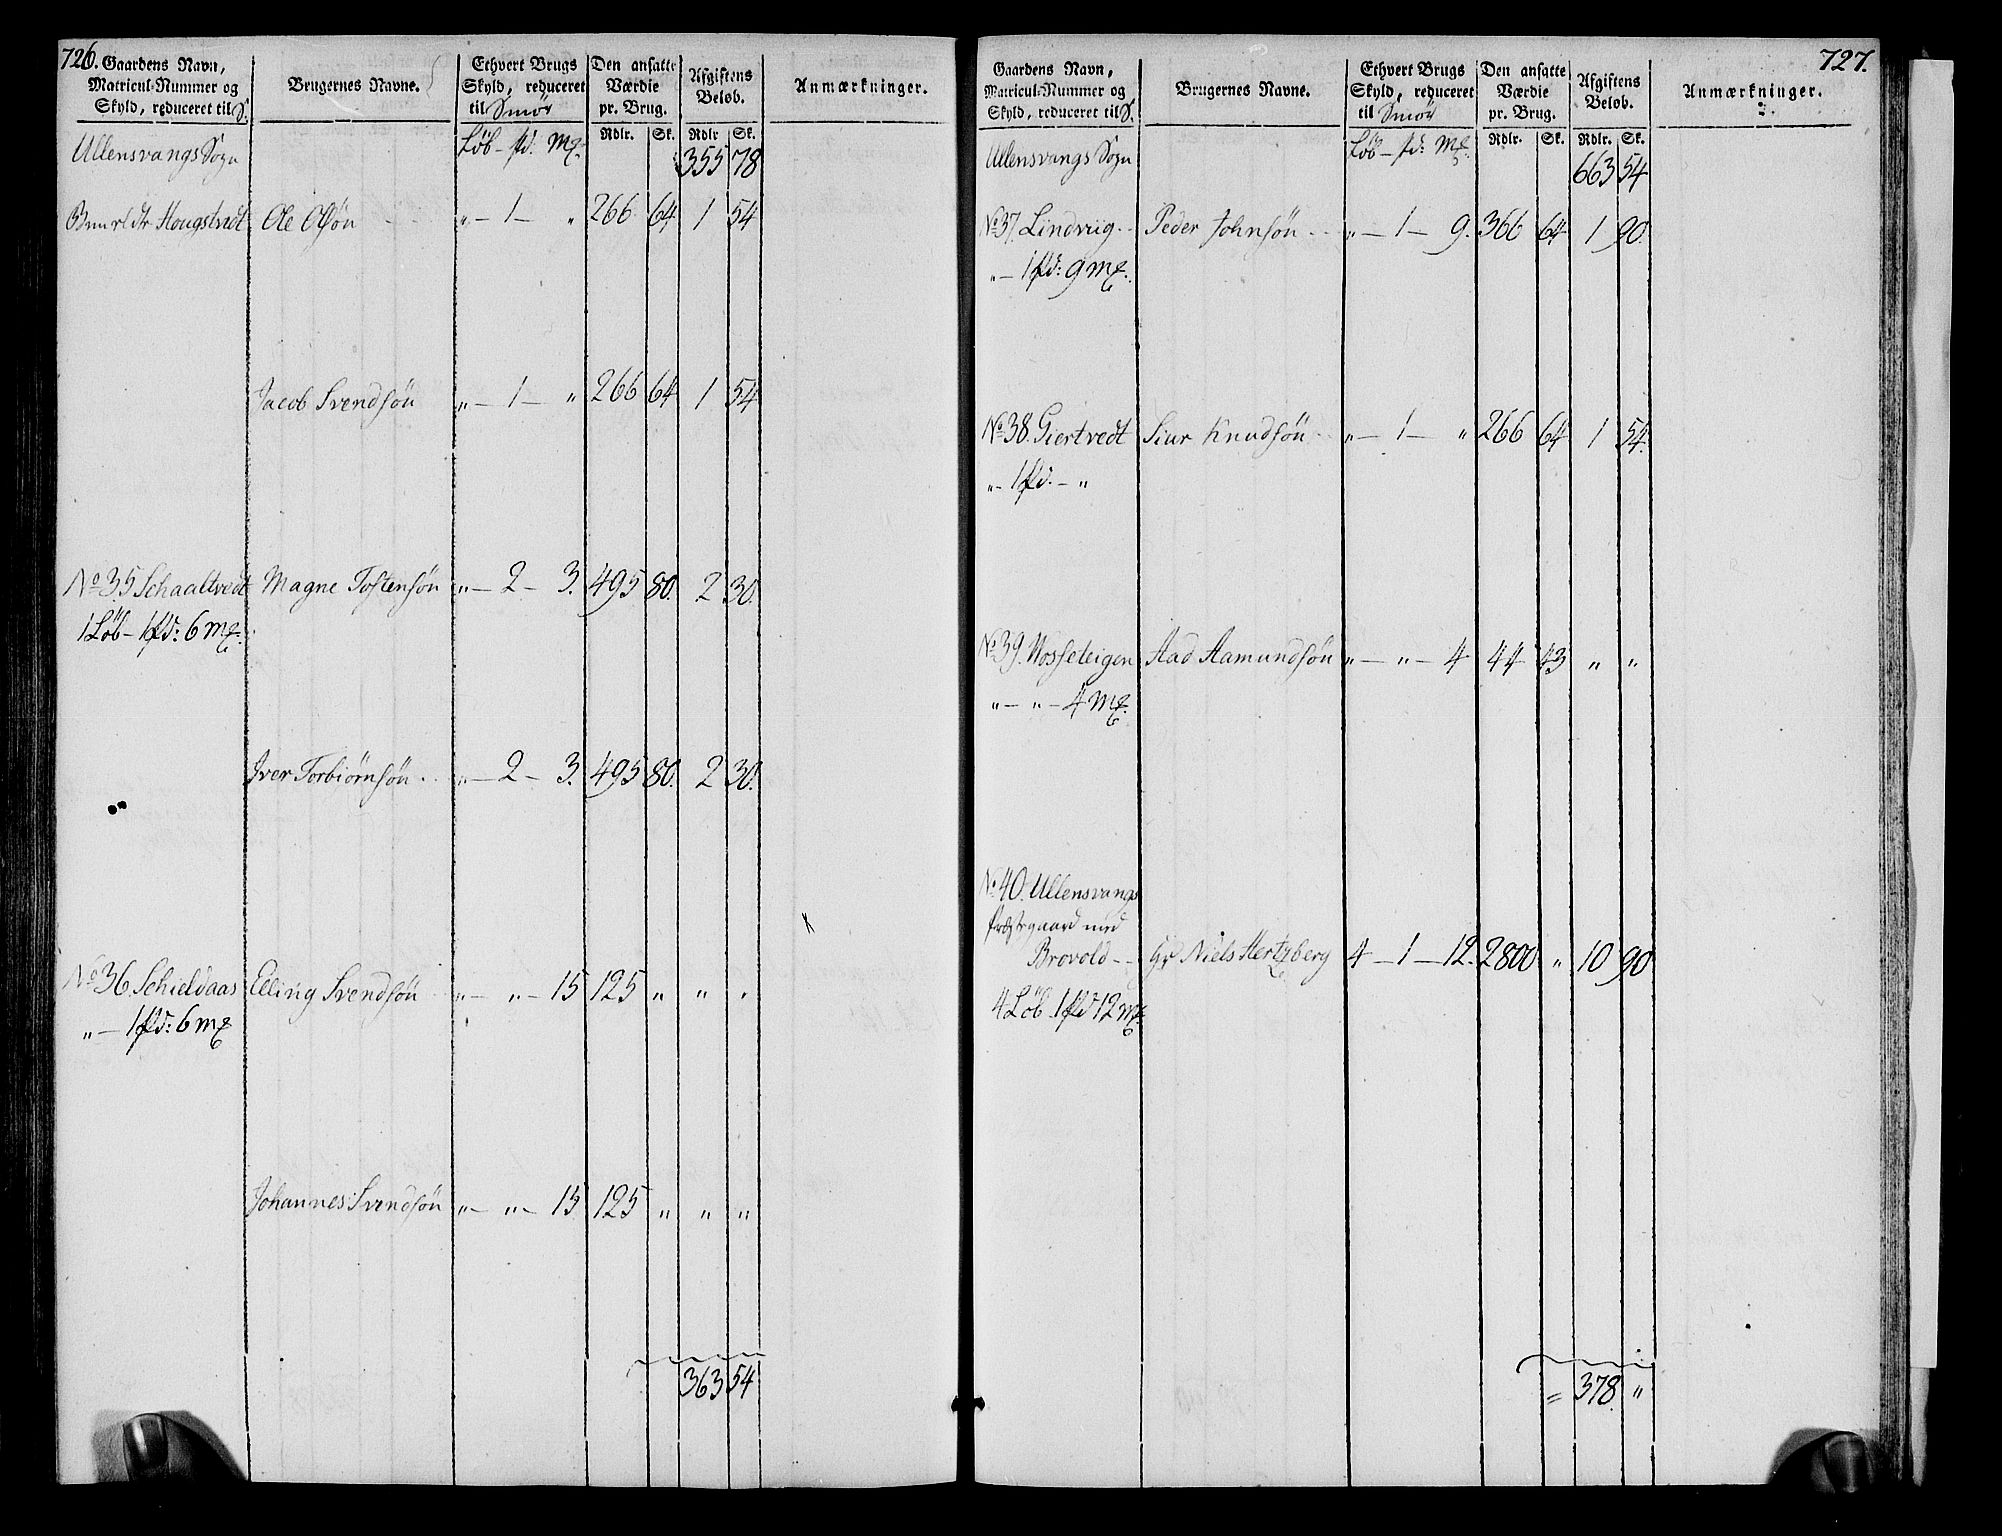 726.
Gaardens Navn,
Matricul-Nummer og
Skyld, reduceret til S.
Brugernes Navne.
Ethvert Brugs
Skyld, reduceret
til Smör
Den ansatte
Værdie
pr. Brug.
Afgiftens
Beløb.
Anmærkninger.
Rdlr. Sk. Rdlr Sk.
Ullensvangs Sogn Löb - pd: Mk. 355 78
Hougstvedt Ole Olsøn „ - 1 - „ 266 64 1 54
Jacob Svendsøn „ - 1 - „ 266 64 1 54
No 35 Schaaltvedt Magne Tostensøn „ - 2 - 3. 495 80. 2 30.
1 Löb - 1 pd: 6 Mk.
Iver Torbiørnsøn „ - 2 - 3. 495 80. 2 30.
No 36 Schieldaas Elling Svendsøn „ - „ - 15 125 „ „ „
„ - 1 pd: 6 Mk
Johannes Svendsøn „ - „ - 15 125 „ „ „
363 54
727.
Gaardens Navn,
Matricul-Nummer og
Skyld, reduceret til S.
Brugernes Navne.
Ethvert Brugs
Skyld, reduceret
til Smör
Den ansatte
Værdie
pr. Brug.
Afgiftens
Beløb.
Anmærkninger.
Rdlr. Sk. Rdlr. Sk.
Ullensvangs Sogn Löb - pd: Mk. 663 54
No 37. Lindviig Peder Johnsøn „ - 1 - 9. 366 64 1 90.
„ - 1 pd: 9 Mk.
No 38. Giertvedt Siur Knudsøn „ - 1 - „ 266 64 1 54.
„ - 1 pd. - „
No 39. Wosseteigen Aad Aamundsøn „ - „ - 4 44 43 „ „
„ - „ - 4 Mk.
No 40. Ullensvangs
Præstegaard med
Brovold - - Hr Niels Hertzberg 4 - 1 - 12. 2800 „ 10 90
4 Löb - 1 pd 12 Mk.
= 378. „